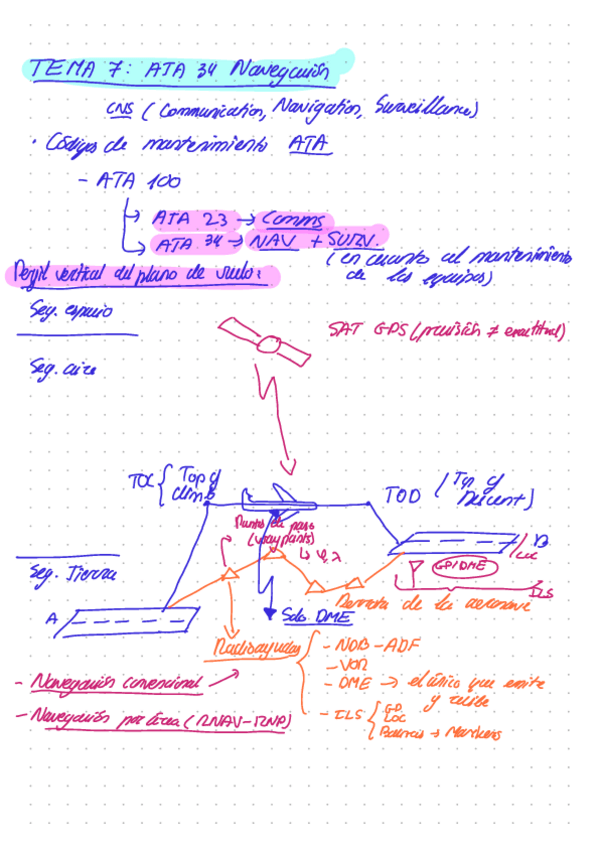 TEMA 7: ATA 34 Navegación
CNS (Communication, Navigation, Surveillance)
· Códigos de mantenimiento ATA
- ATA 100
→ ATA 23 → Comms
→ ATA 34 → NAV + SURV.
(en cuanto al mantenimiento
de los equipos)
Perfil vertical del plano de vuelo:
Seg. espacio
SAT GPS (precisión ≠ exactitud)
Seg. aire
TOC { Top of
climb
TOD (Top of
Descent)
Puntos de paso
(waypoints)
↳ φ, λ
B
LOC
Seg. Tierra
GP/DME
ILS
A
Derrota de la aeronave
Solo DME
Radioayudas
- NDB - ADF
- VOR
- DME → el único que emite
y recibe
- ILS { GP
LOC
Balizas → Markers
- Navegación convencional
- Navegación por área (RNAV - RNP)